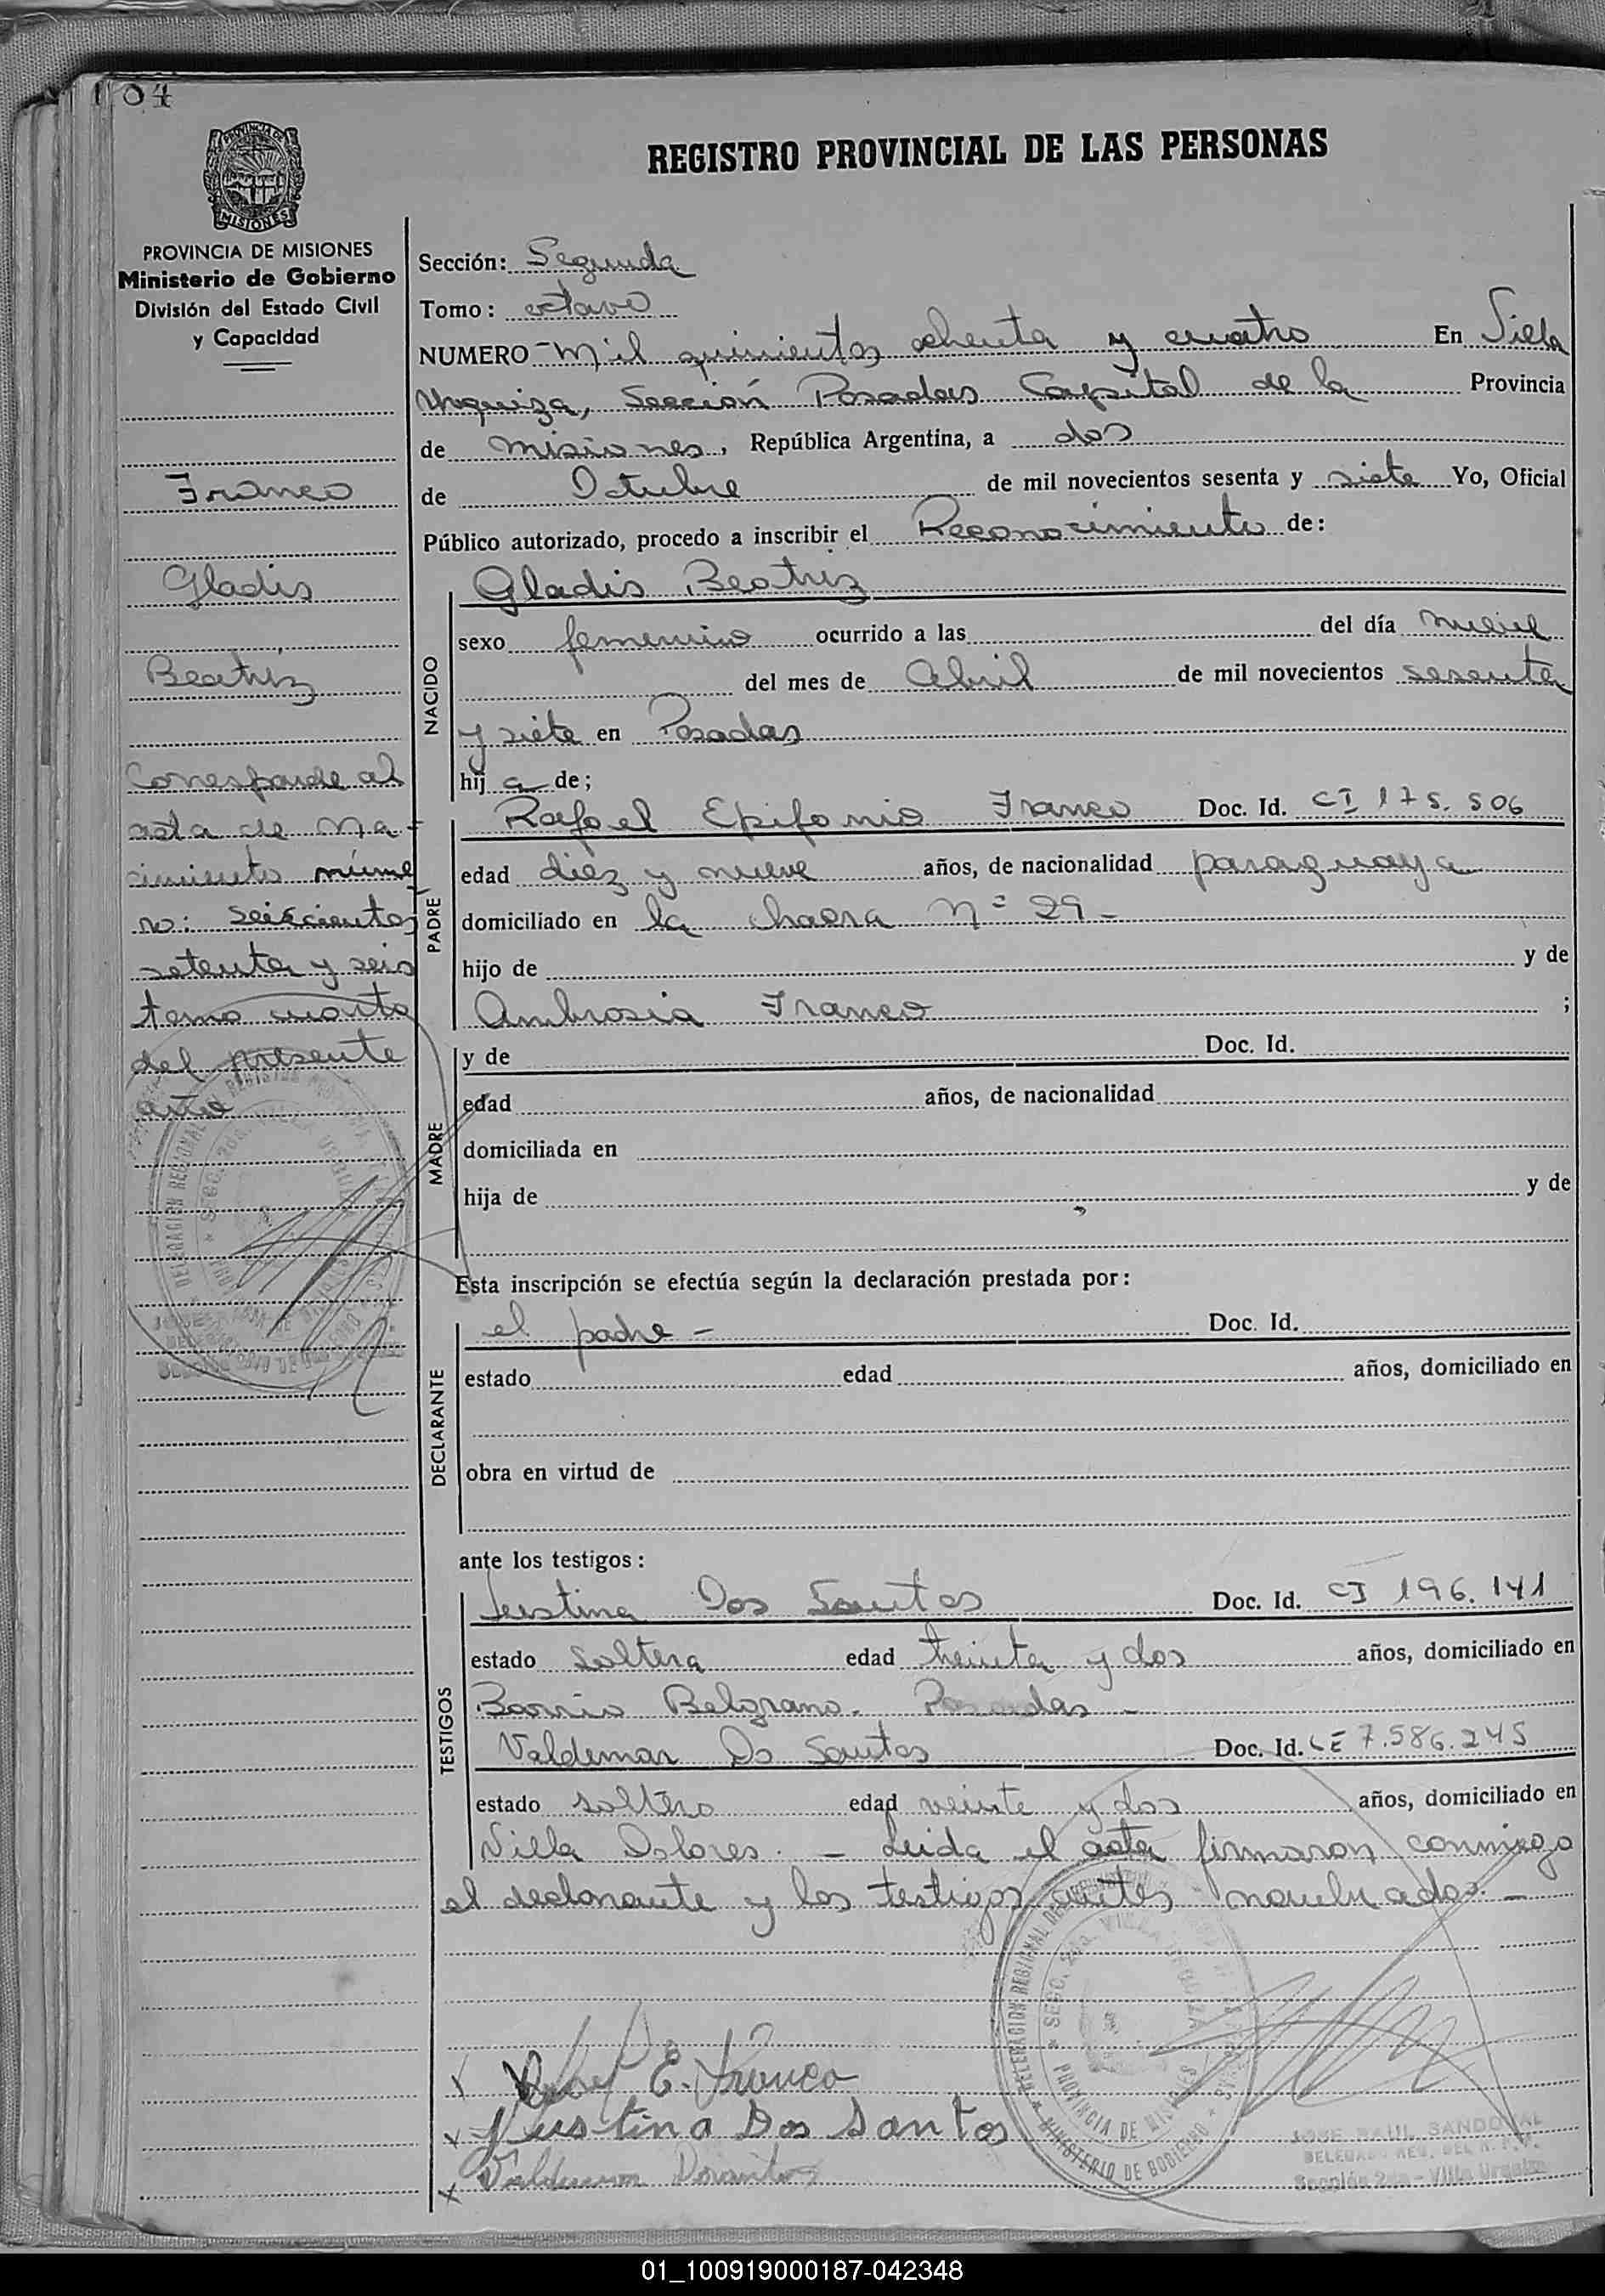 104
PROVINCIA DE
MISIONES
PROVINCIA DE MISIONES
Ministerio de Gobierno
División del Estado Civil
y Capacidad
Franco
Gladis
Beatriz
Corresponde al
acta de Na-
cimiento núme
ro: seiscientos
setenta y seis
tomo cuarto
del presente
año
REGISTRO PROVINCIAL DE LAS PERSONAS
Sección: Segunda
Tomo: octavo
NUMERO - Mil quinientos ochenta y cuatro En Villa
Urquiza, Sección Posadas Capital de la Provincia
de Misiones, República Argentina, a dos
de Octubre de mil novecientos sesenta y siete Yo, Oficial
Público autorizado, procedo a inscribir el Reconocimiento de:
NACIDO
Gladis Beatriz
sexo femenino ocurrido a las del día nueve
del mes de Abril de mil novecientos sesenta
y siete en Posadas
hij a de;
PADRE
Rafael Epifanio Franco Doc. Id. CI 175.506
edad diez y nueve años, de nacionalidad paraguaya
domiciliado en la chacra Nº 29 -
hijo de y de
Ambrosia Franco ;
MADRE
y de Doc. Id.
edad años, de nacionalidad
domiciliada en
hija de y de
Esta inscripción se efectúa según la declaración prestada por:
DECLARANTE
el padre - Doc. Id.
estado edad años, domiciliado en
obra en virtud de
ante los testigos:
TESTIGOS
Justina Dos Santos Doc. Id. CI 196.141
estado soltera edad treinta y dos años, domiciliado en
Barrio Belgrano. Posadas -
Valdemar Do Santos Doc. Id. LE 7.586.245
estado soltero edad veinte y dos años, domiciliado en
Villa Dolores. - Leida el acta firmaron conmigo
el declarante y los testigos antes nombrados. -
DELEGACION REGIONAL DEL REGISTRO
SECC. 2da. VILLA URQUIZA
PROVINCIA DE MISIONES
MINISTERIO DE GOBIERNO
x Rafael E. Franco
x Justina Dos Santos
x Valdemar
JOSE RAUL SANDOVAL
DELEGADO REG. DEL R. P. P.
Sección 2da - Villa Urquiza
01_100919000187-042348